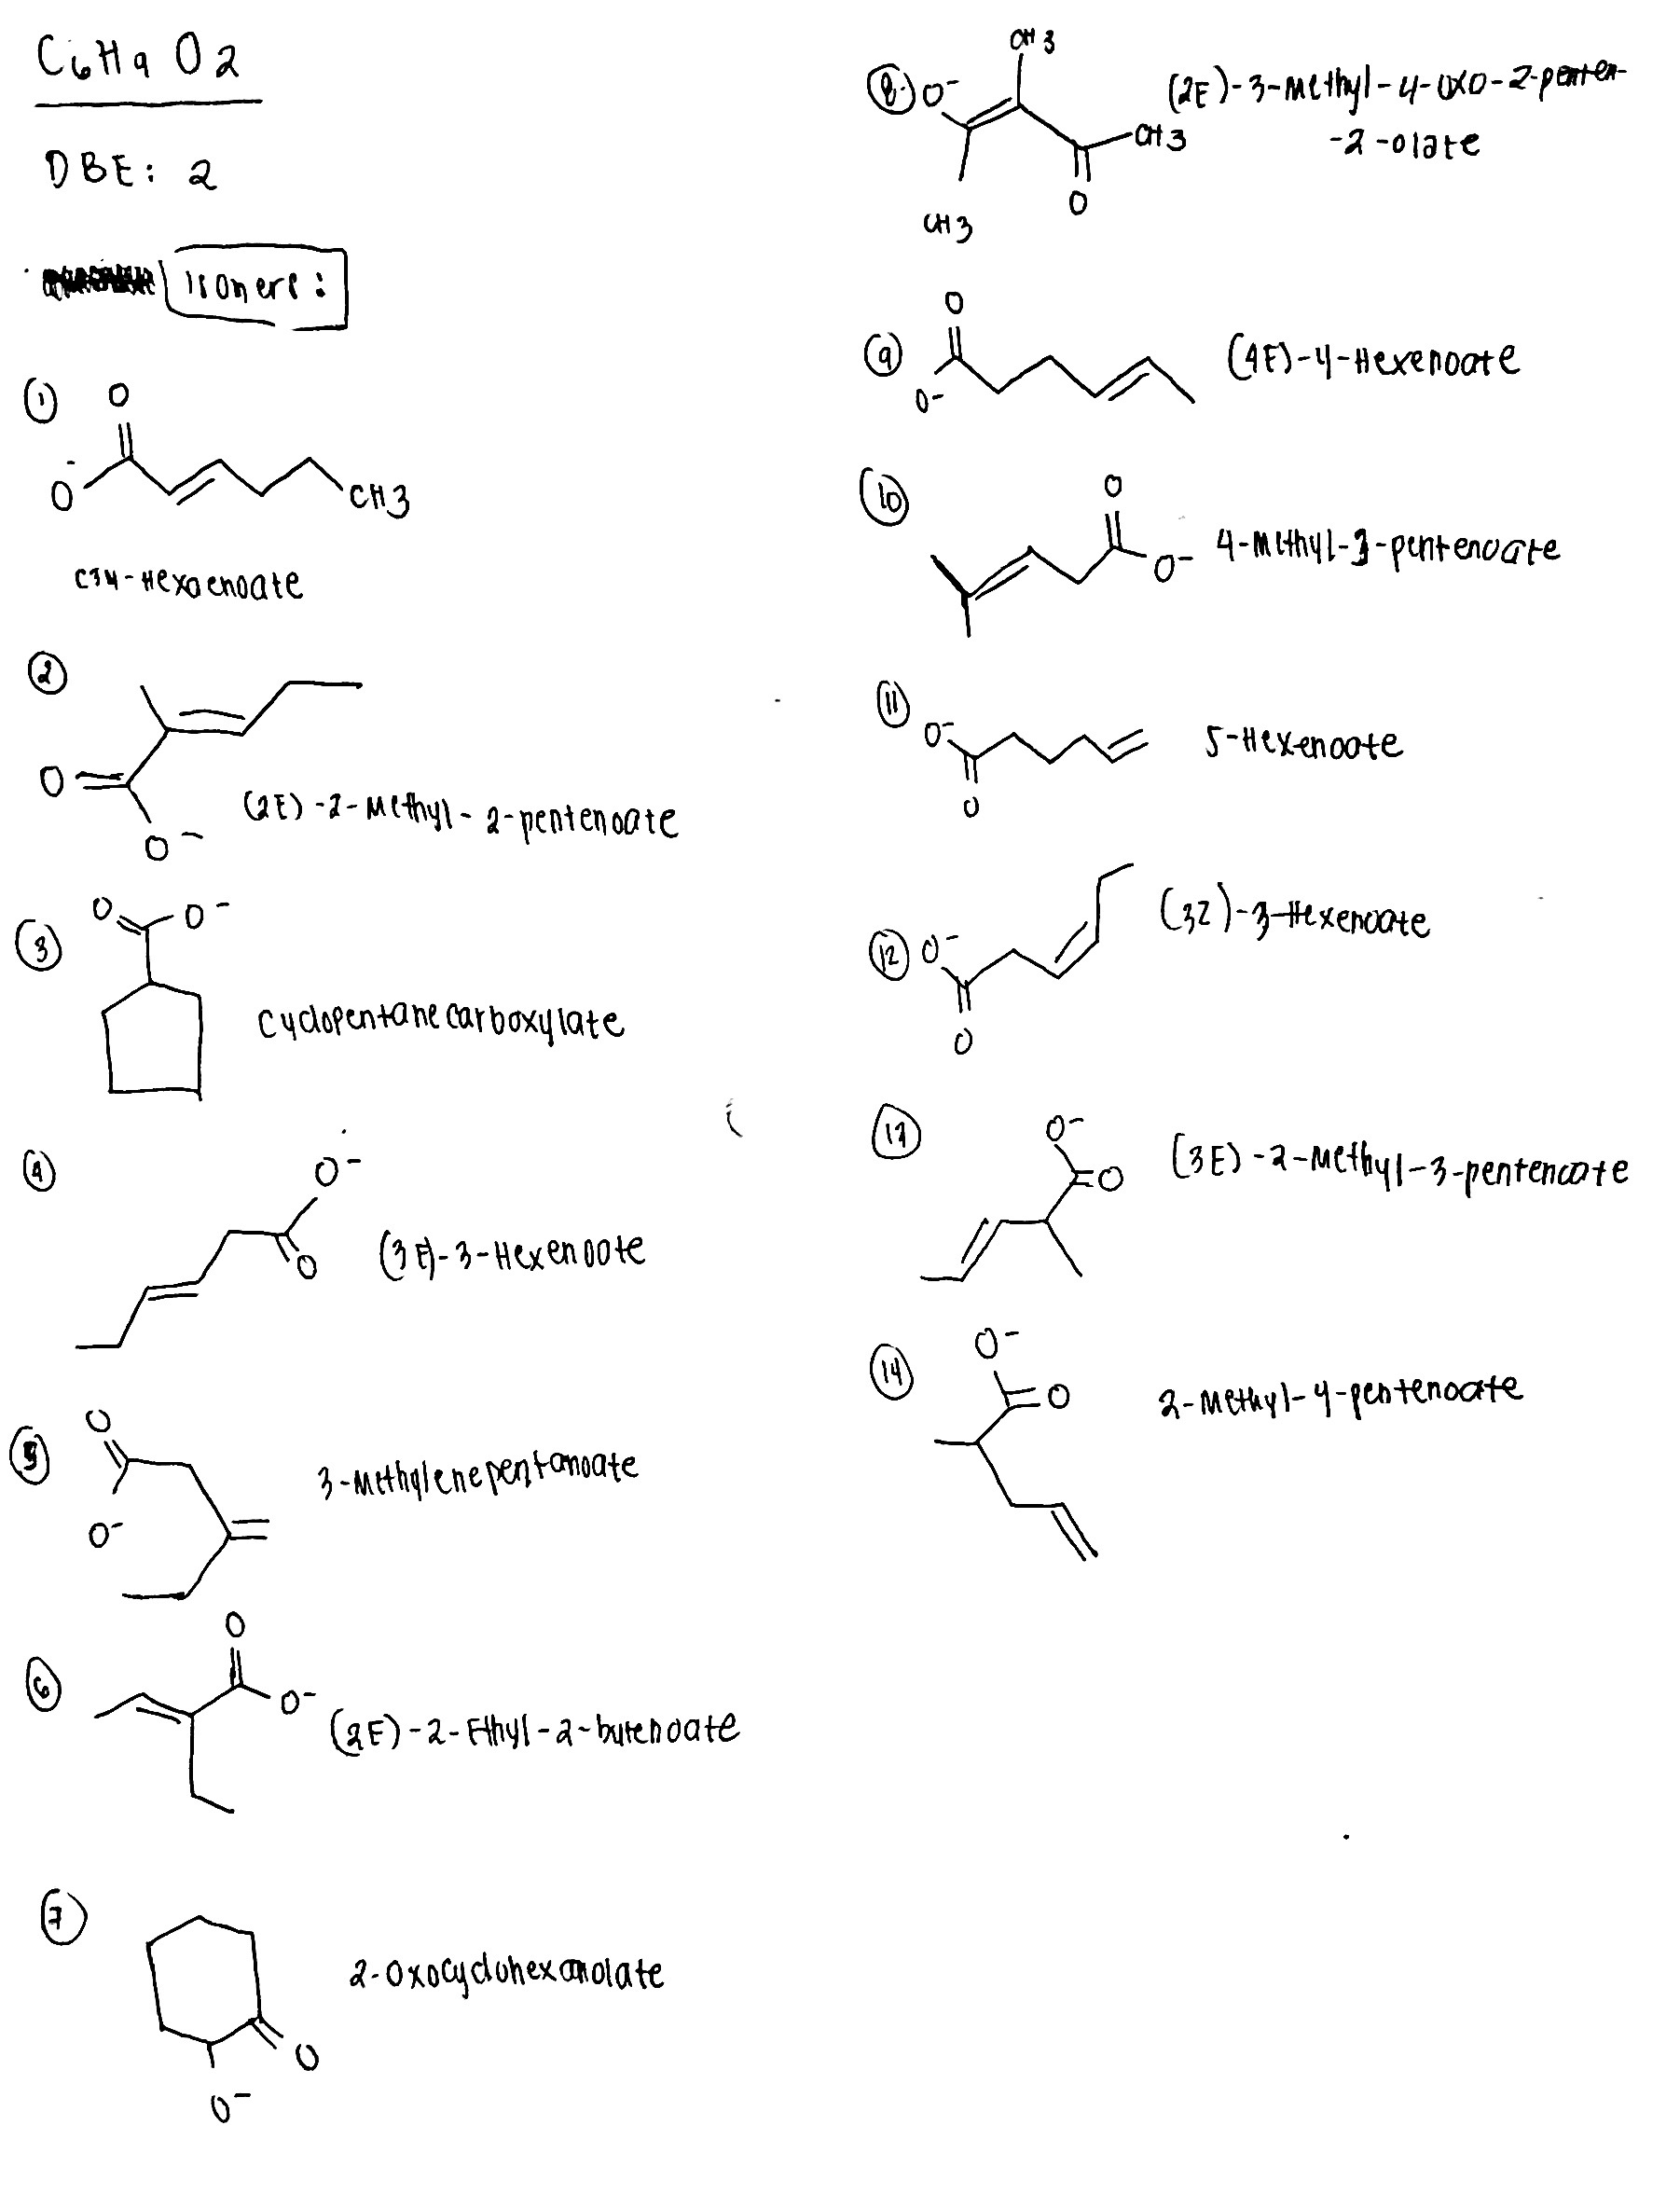 C6H9O2
DBE: 2
Isomers:
①
O
O-
CH3
-Hexaenoate
②
O
O-
(2E)-2-Methyl-2-pentenoate
③
O
O-
Cyclopentanecarboxylate
④
O-
O
(3E)-3-Hexenoate
⑤
O
O-
3-Methylenepentanoate
⑥
O
O-
(2E)-2-Ethyl-2-butenoate
⑦
O
O-
2-Oxocyclohexanolate
⑧
O-
CH3
CH3
O
CH3
(2E)-3-Methyl-4-oxo-2-penten-
-2-olate
⑨
O
O-
(4E)-4-Hexenoate
⑩
O
O-
4-Methyl-3-pentenoate
⑪
O-
O
5-Hexenoate
⑫
O-
O
(3Z)-3-Hexenoate
⑬
O-
O
(3E)-2-Methyl-3-pentenoate
⑭
O-
O
2-Methyl-4-pentenoate